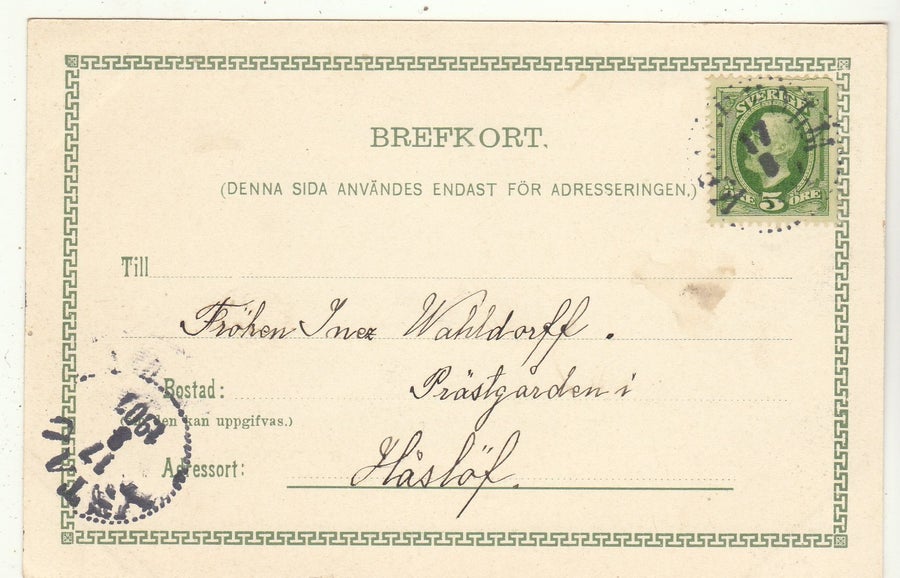 BREFKORT.
(DENNA SIDA ANVÄNDES ENDAST FÖR ADRESSERINGEN.)
SVERIGE
17
8
5 ÖRE
Till
Fröken Inez Wahldorff.
Bostad:
Prästgården i
kan uppgifvas.)
Adressort:
Håslöf.
1901
8
17